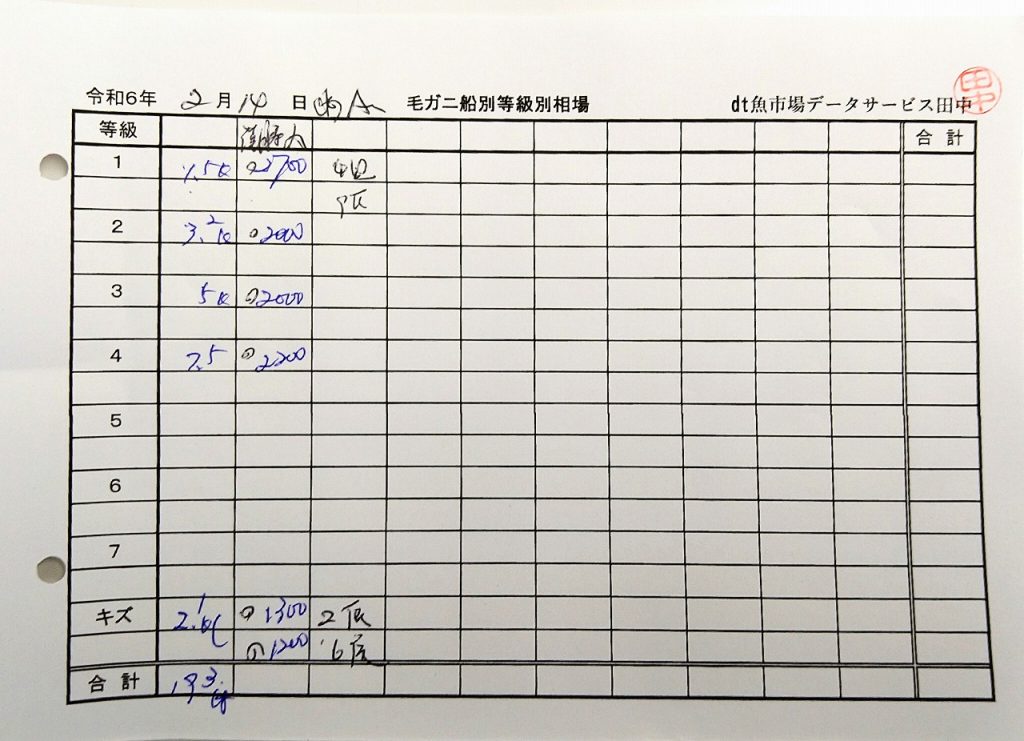 令和6年 2月14日 毛ガニ船別等級別相場 dt魚市場データサービス田中
田中
等級 合計
1 1.5K @2700
2 3.2K @2000
3 5K @2000
4 7.5 @2200
5
6
7
キズ 2.1K @1300 2
@1200 6
合計 19.3K